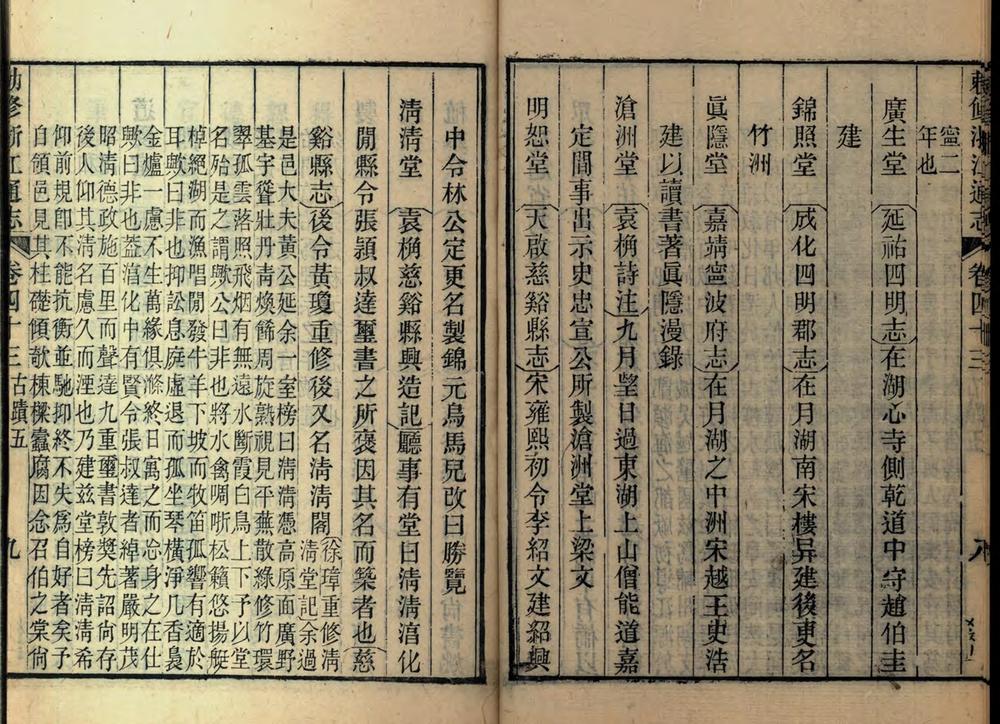 敕修浙江通志 卷四十三 八
寧二
年也
廣生堂 延祐四明志在湖心寺側乾道中守趙伯圭
建
錦照堂 成化四明郡志在月湖南宋樓异建後更名
竹洲
眞隱堂 嘉靖寧波府志在月湖之中洲宋越王史浩
建以讀書著眞隱漫錄
滄洲堂 袁桷詩注九月望日過東湖上山僧能道嘉
定間事出示史忠宣公所製滄洲堂上梁文
明恕堂 天啟慈谿縣志宋雍熙初令李紹文建紹興
中令林公定更名製錦元鳥馬兒改曰勝覽
清清堂 袁桷慈谿縣興造記廳事有堂曰清清湻化
閒縣令張穎叔達璽書之所褒因其名而築者也慈
谿縣志後令黃瓊重修後又名清清閣
徐璋重修清
清堂記余過
是邑大夫黃公延余一室榜曰清清憑高原面廣野
基宇聳壯丹青煥餙周旋熟視見平蕪散綠修竹環
翠孤雲落照飛烟有無遠水斷霞白鳥上下予以堂
名殆是之謂歟公曰非也將水禽啁哳松籟悠揚艇
棹絕湖而漁唱閒發牛羊下坡而牧笛孤響有適於
耳歟曰非也抑訟息庭虛退而孤坐琴橫淨几香裊
金爐一慮不生萬緣俱滌終日寓之而忘身之在仕
歟曰非也葢湻化中有賢令張叔達者綽著嚴明茂
昭清德政施百里而聲達九重璽書敦奬先詔尙存
後人仰其清名慮久而湮也乃建兹堂榜曰清清希
仰前規卽不能抗衡並馳抑終不失爲自好者矣予
自領邑見其柱礎傾欹棟樑蠹腐因念召伯之棠尙
勅修浙江通志 卷四十三古蹟五 九